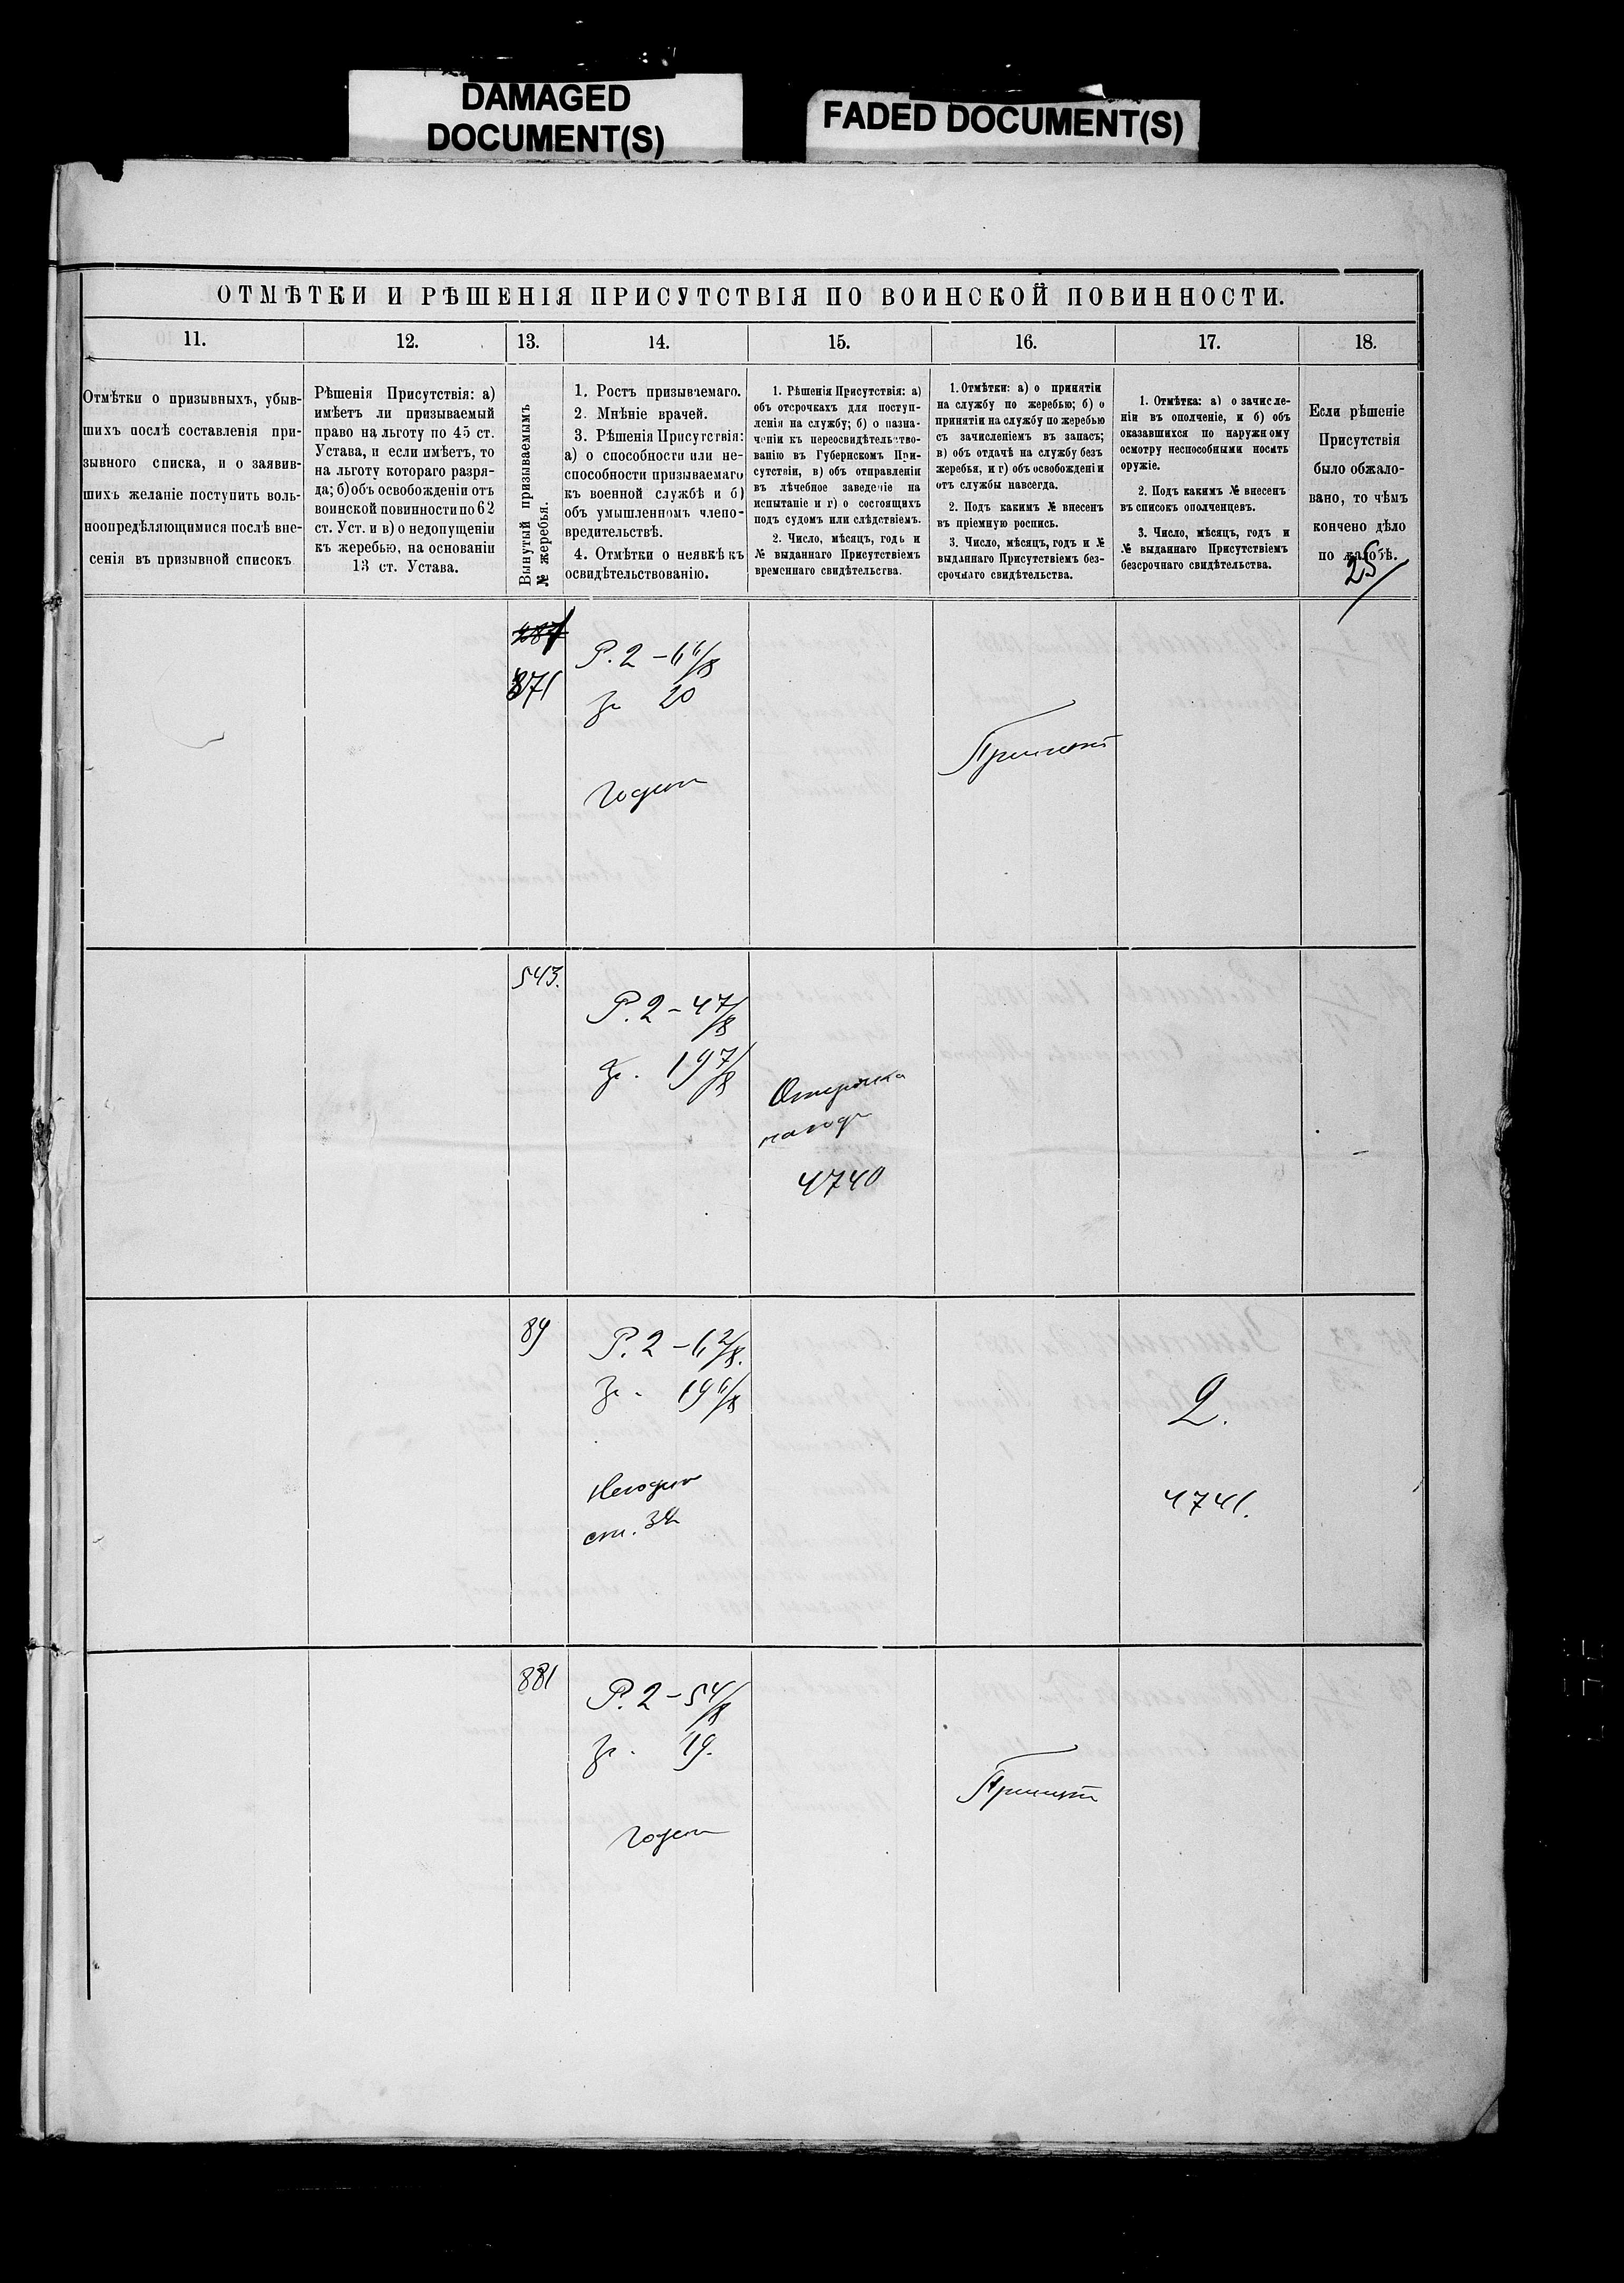 DAMAGED
DOCUMENT(S)
FADED DOCUMENT(S)
ОТМѢТКИ И РѢШЕНІЯ ПРИСУТСТВІЯ ПО ВОИНСКОЙ ПОВИННОСТИ.
11.
12.
13.
14.
15.
16.
17.
18.
Отмѣтки о призывныхъ, убыв-
шихъ послѣ составленія при-
зывного списка, и о заявив-
шихъ желаніе поступить воль-
ноопредѣляющимися послѣ вне-
сенія въ призывной списокъ
Рѣшенія Присутствія: а)
имѣетъ ли призываемый
право на льготу по 45 ст.
Устава, и если имѣетъ, то
на льготу котораго разря-
да; б) объ освобожденіи отъ
воинской повинности по 62
ст. Уст. и в) о недопущеніи
къ жеребью, на основаніи
13 ст. Устава.
Вынутый призываемымъ
№ жеребья.
1. Ростъ призываемаго.
2. Мнѣніе врачей.
3. Рѣшенія Присутствія:
а) о способности или не-
способности призываемаго
къ военной службѣ и б)
объ умышленномъ члено-
вредительствѣ.
4. Отмѣтки о неявкѣ къ
освидѣтельствованію.
1. Рѣшенія Присутствія: а)
объ отсрочкахъ для поступ-
ленія на службу; б) о назна-
ченіи къ переосвидѣтельство-
ванію въ Губернскомъ При-
сутствіи, в) объ отправленіи
въ лѣчебное заведеніе на
испытаніе и г) о состоящихъ
подъ судомъ или слѣдствіемъ.
2. Число, мѣсяцъ, годъ и
№ выданнаго Присутствіемъ
временнаго свидѣтельства.
1. Отмѣтки: а) о принятіи
на службу по жеребью; б) о
принятіи на службу по жеребью
съ зачисленіемъ въ запасъ;
в) объ отдачѣ на службу безъ
жеребья, и г) объ освобожденіи
отъ службы навсегда.
2. Подъ какимъ № внесенъ
въ пріемную роспись.
3. Число, мѣсяцъ, годъ и №
выданнаго Присутствіемъ без-
срочнаго свидѣтельства.
1. Отмѣтка: а) о зачисле-
ніи въ ополченіе, и б) объ
оказавшихся по наружному
осмотру неспособными носить
оружіе.
2. Подъ какимъ № внесенъ
въ списокъ ополченцевъ.
3. Число, мѣсяцъ, годъ и
№ выданнаго Присутствіемъ
безсрочнаго свидѣтельства.
Если рѣшеніе
Присутствія
было обжало-
вано, то чѣмъ
кончено дѣло
по жалобѣ.
25/
871
Р. 2 – 6 6/8
гр 20
Годенъ
Принятъ
543.
Р. 2 – 4 7/8
гр. 19 7/8
Отсрочка
на годъ
4740
89
Р. 2 – 6 2/8.
гр. 19 6/8
Негоденъ
ст.
2.
4741.
881
Р. 2 – 5 4/8
гр. 19.
Годенъ
Принятъ